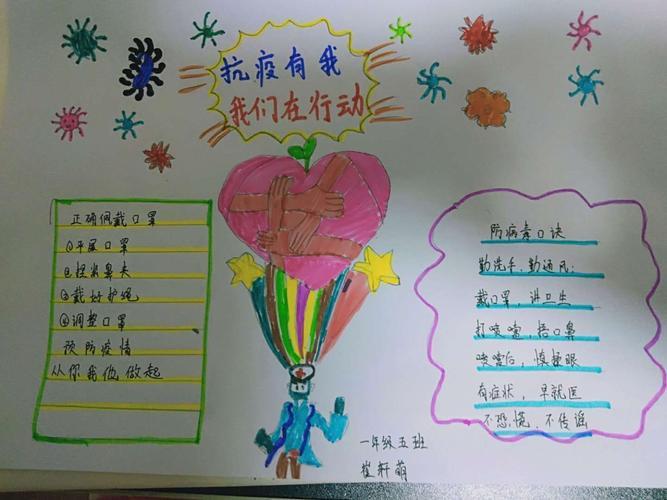 抗疫有我
我们在行动
正确佩戴口罩
①平展口罩
②捏紧鼻夹
③戴好护绳
④调整口罩
预防疫情
从你我他做起
防病毒口诀
勤洗手，勤通风；
戴口罩，讲卫生
打喷嚏，捂口鼻
喷嚏后，慎揉眼
有症状，早就医
不恐慌、不传谣
一年级五班
崔轩萌